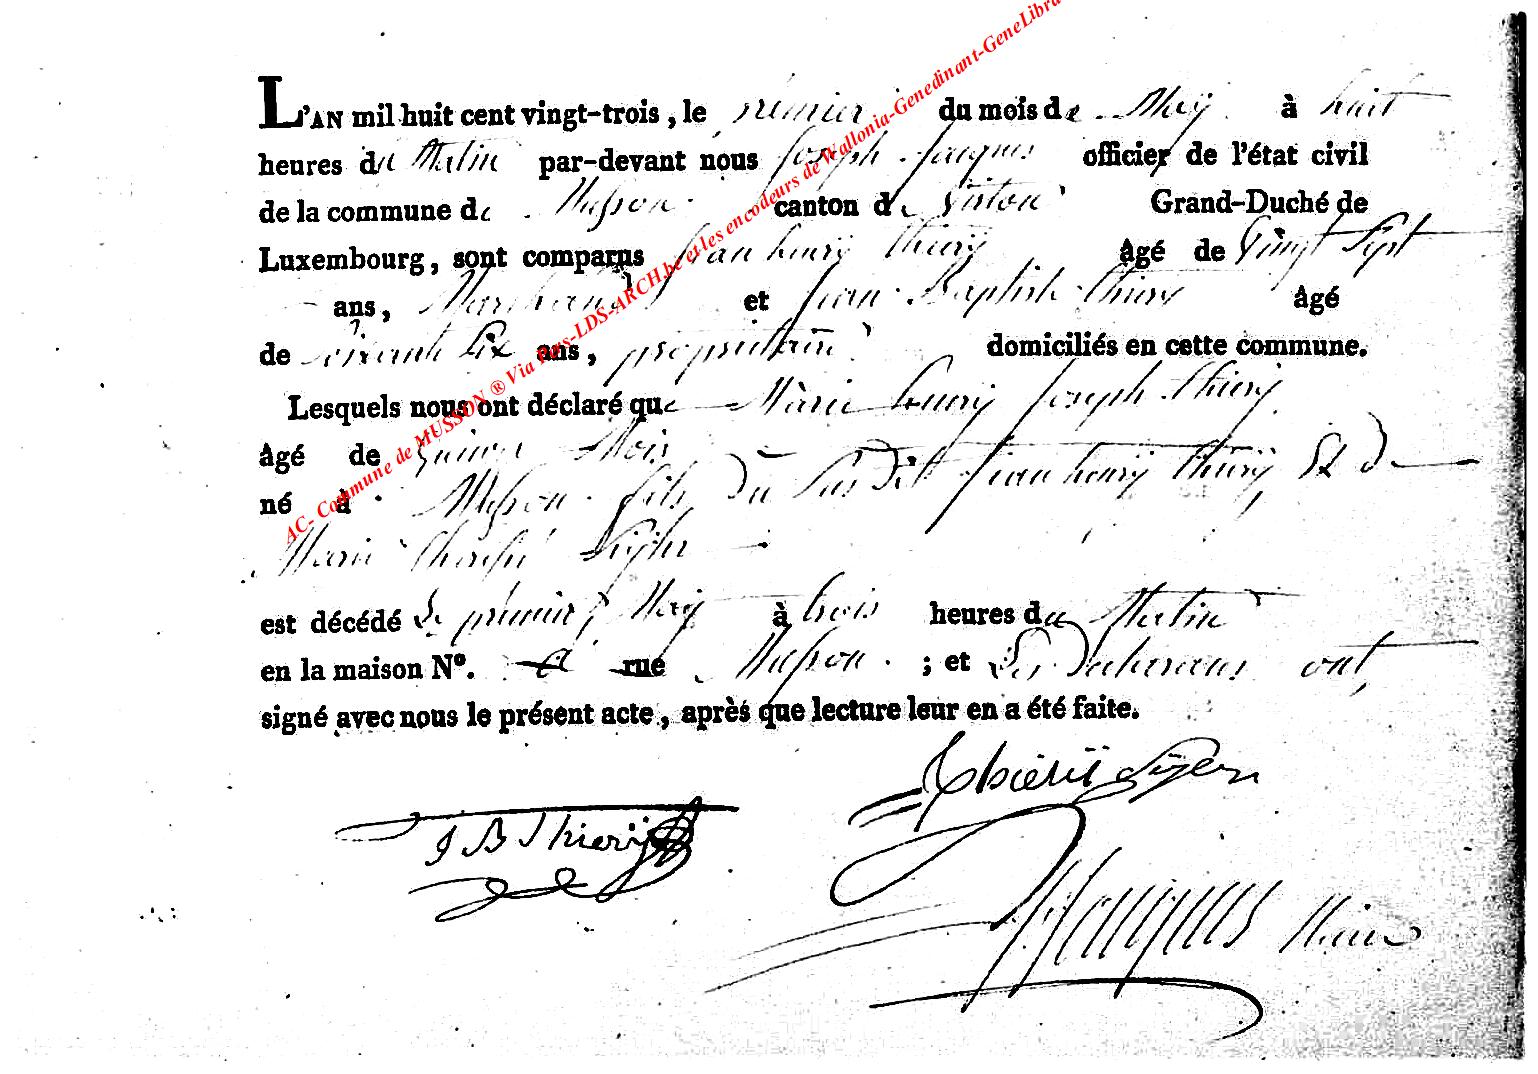 L'AN mil huit cent vingt-trois, le premier du mois de Maÿ à huit
heures du Matin par-devant nous Joseph Jacques officier de l'état civil
de la commune de Musson canton de Virton Grand-Duché de
Luxembourg, sont comparus Jean henrÿ thierÿ âgé de Vingt Sept
ans, Marchand et Jean Baptiste thierÿ âgé
de soixante Six ans, propriétaire domiciliés en cette commune.
Lesquels nous ont déclaré que Marie henrÿ Joseph thierÿ
âgé de quinze Mois
né à Musson fils du Susdit Jean henrÿ thierÿ Et de
Marie
est décédé Le premier Maÿ à trois heures du Matin
en la maison N°. a rue Musson ; et Les Declarans ont
signé avec nous le présent acte, après que lecture leur en a été faite.
thierÿ
J B Thierÿ
Jacques Maire
AC- Commune de MUSSON ® Via Rws-LDS-ARCH.be et les encodeurs de Wallonia-Genedinant-GeneLibra